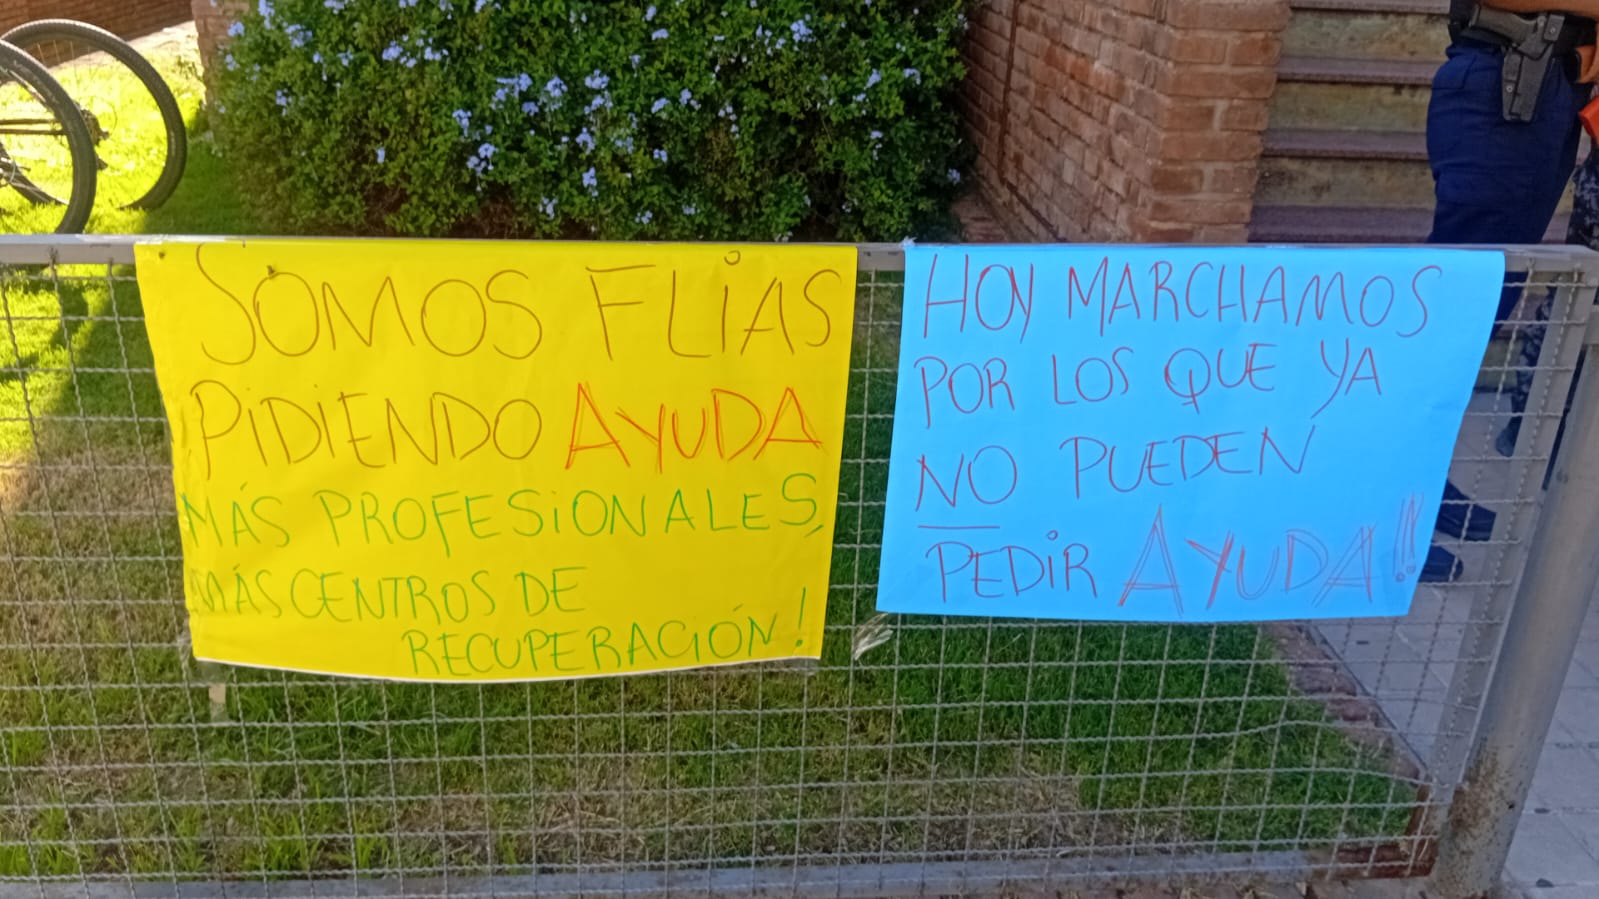 SOMOS FLIAS
PIDIENDO AYUDA
MÁS PROFESIONALES,
MÁS CENTROS DE
RECUPERACIÓN!
HOY MARCHAMOS
POR LOS QUE YA
NO PUEDEN
PEDIR AYUDA!!